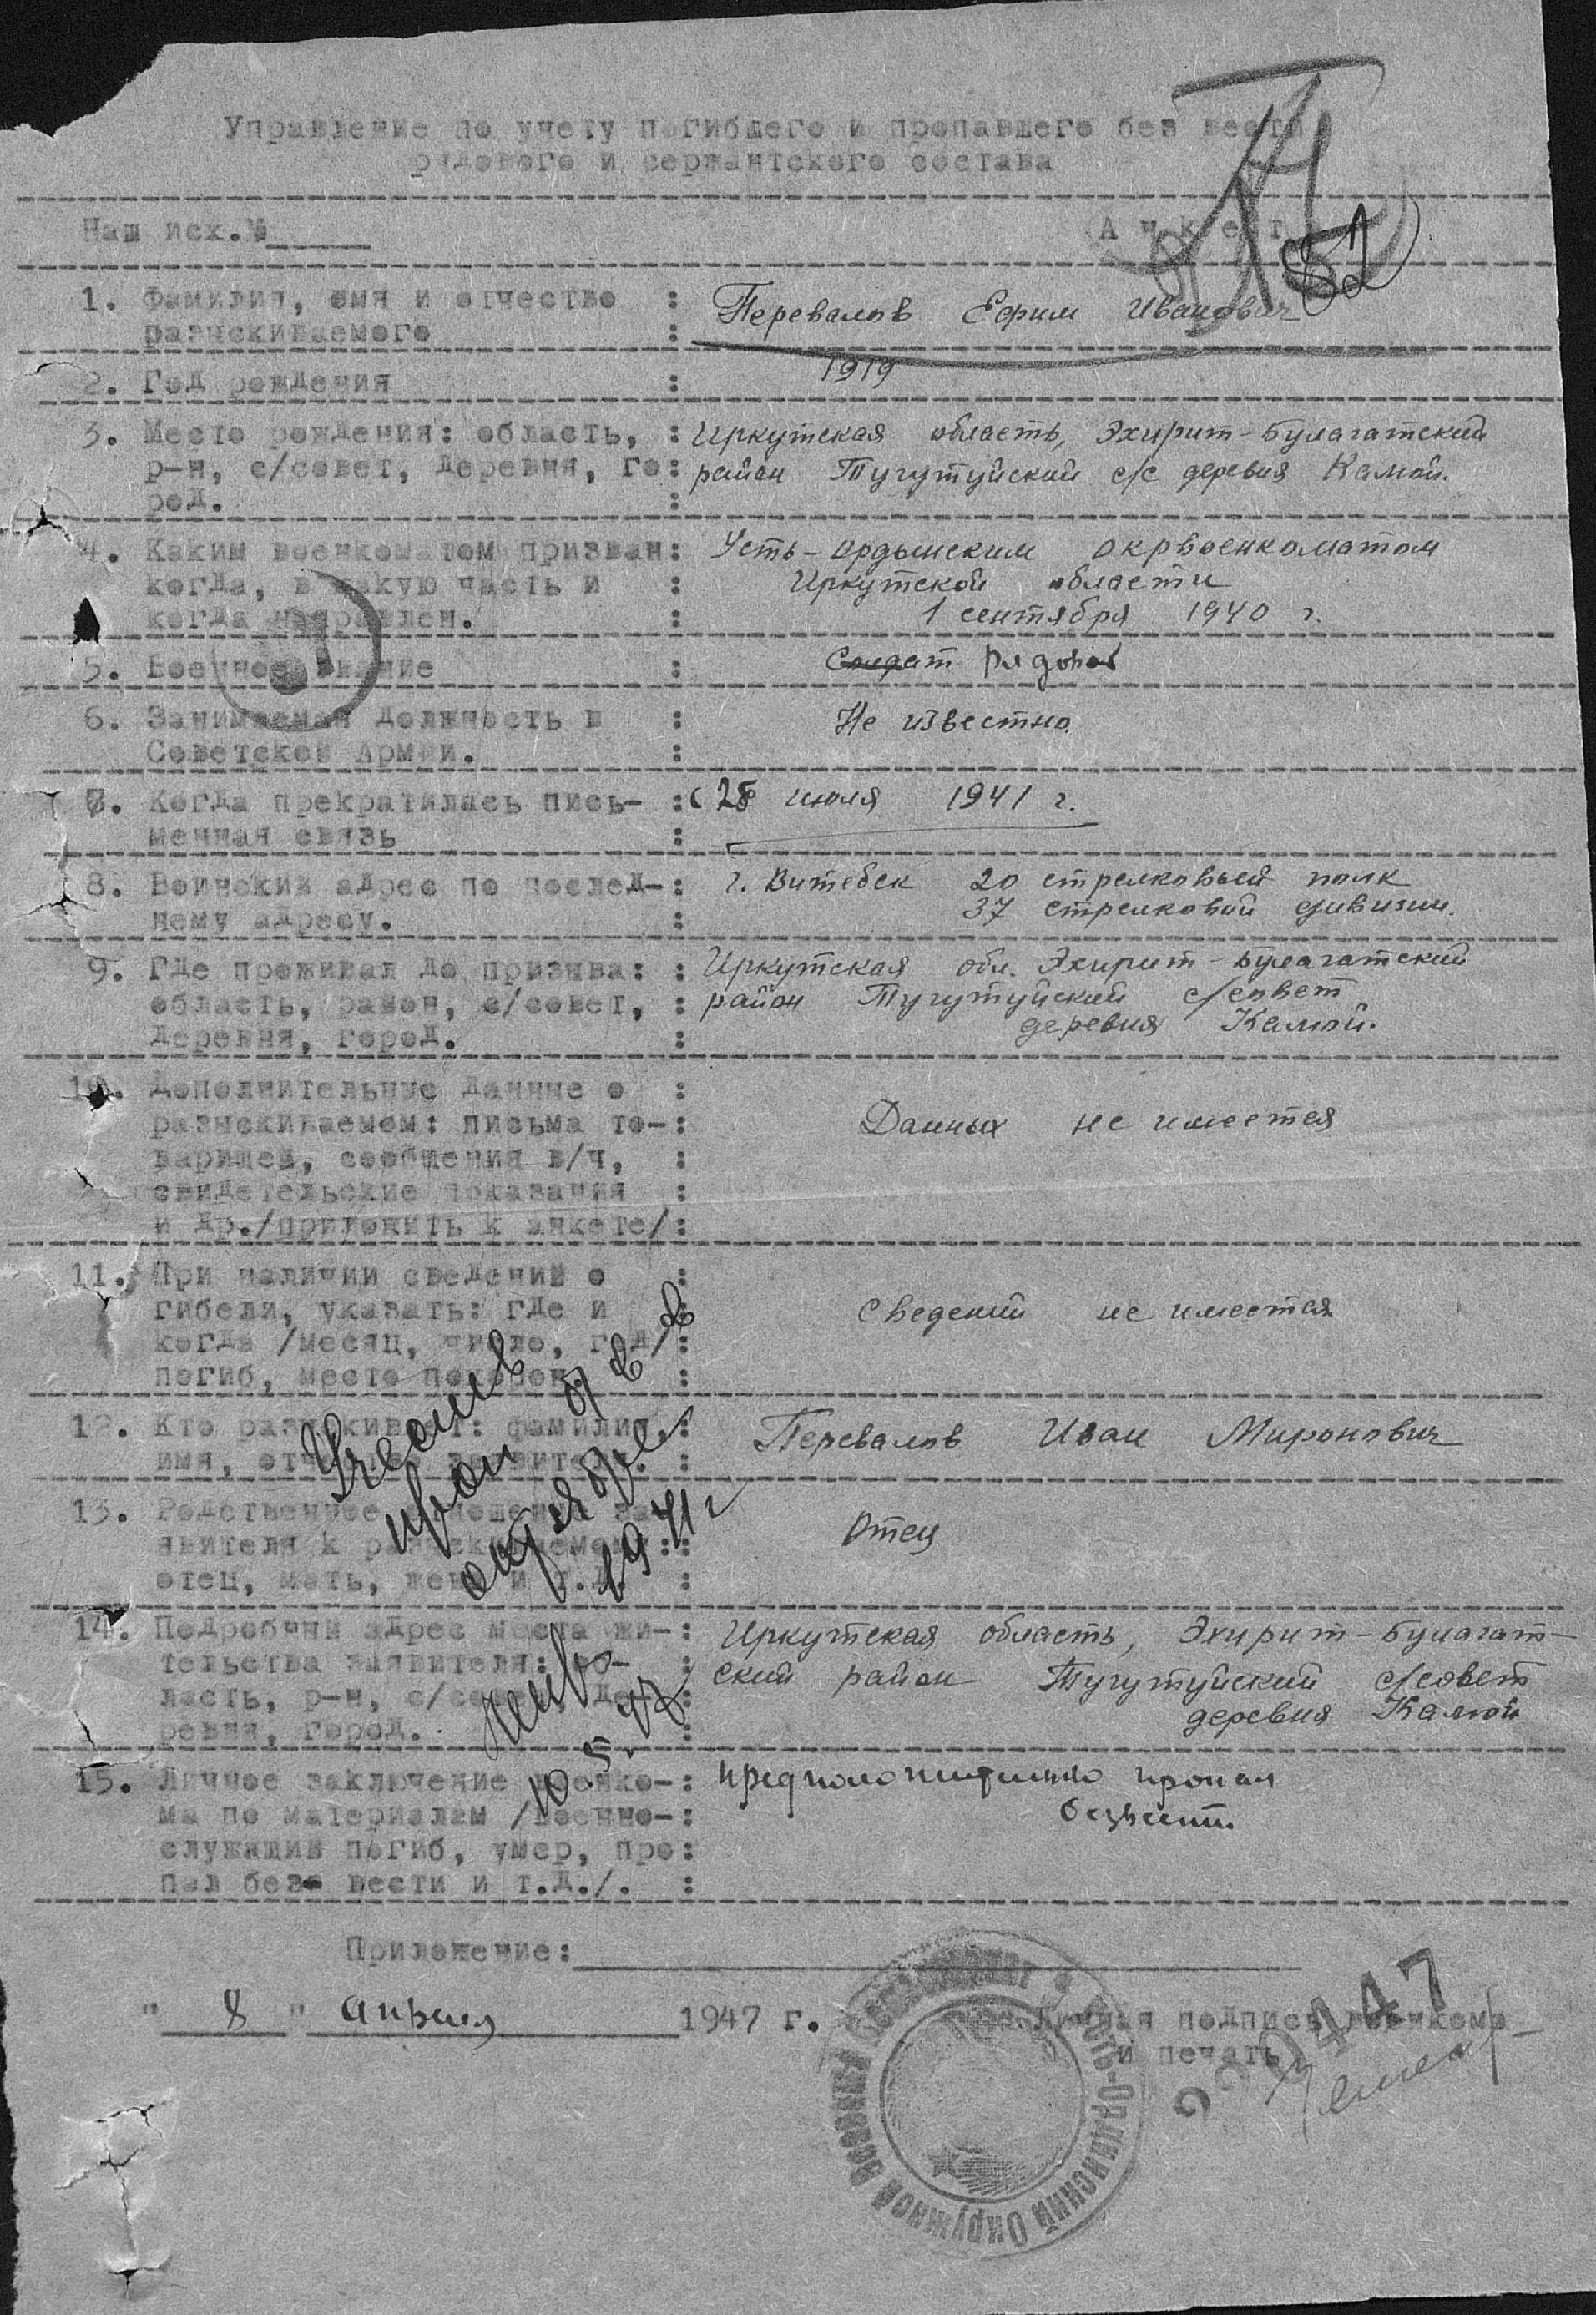 Управление по учету погибшего и пропавшего без вести
рядового и сержантского состава
Наш исх.№
Анкета
1. Фамилия, имя и отчество : Перевалов Ефим Иванович
разыскиваемого :
52
2. Год рождения : 1919
3. Место рождения: область, : Иркутская область, Эхирит-Булагатский
р-н, с/совет, деревня, го: район Тугутуйский с/с деревня Камой.
род. :
4. Каким военкоматом призван: Усть-Ордынским окрвоенкоматом
когда, в какую часть и : Иркутской области
когда направлен. : 1 сентября 1940 г.
5. Военное звание : Солдат Рядовой
6. Занимаемая должность в : Не известно.
Советской Армии. :
7. Когда прекратилась пись- : с 28 июля 1941 г.
менная связь :
8. Воинский адрес по послед-: г. Витебск 20 стрелковый полк
нему адресу. : 37 стрелковой дивизии.
9. Где проживал до призыва: : Иркутская обл. Эхирит-Булагатский
область, район, с/совет, : район Тугутуйский с/совет
деревня, город. : деревня Камой.
10. Дополнительные данные о :
разыскиваемом: письма то-: Данных не имеется
варищей, сообщения в/ч, :
свидетельские показания :
и др./приложить к анкете/:
11. При наличии сведений о :
гибели, указать: где и : Сведений не имеется
когда /месяц, число, год/:
погиб, место похорон. :
12. Кто разыскивает: фамилия,: Перевалов Иван Миронович
имя, отчество заявителя. :
13. Родственное отношение за-
явителя к разыскиваемому: : Отец
отец, мать, жена и т.д. :
14. Подробный адрес места жи-: Иркутская область, Эхирит-Булагат-
тельства заявителя: об- : ский район Тугутуйский с/совет
ласть, р-н, с/совет, де- : деревня Камой
ревня, город. :
15. Личное заключение военко-: предположительно пропал
ма по материалам /военно-: безвести.
служащий погиб, умер, про:
пал без вести и т.д./. :
проп б/в в
октябре
1941 г
10.5.47
Приложение:
" 8 " апреля 1947 г.
Личная подпись военкома
и печать
Усть-Ордынский Окружной Военный Комиссариат